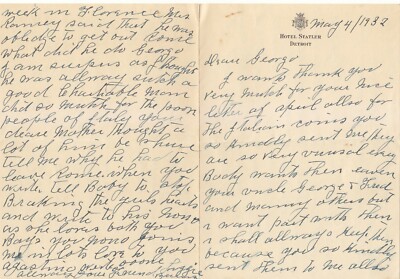 HOTEL STATLER
DETROIT
May 4/1932
Dear George
I wants thank you
very much for your nice
letter of april allso for
the Italian coins you
so kindly sent me, they
are so very unusal
Body wants then even
your uncle George Fred
and manny others but i
want part with then
i shall allways keep then
because you so kindly
sent them to me allso
week in Florence Mrs
Ranney said that he was
oblide to get out Rome
What did he do George
I am surpus as i thought
he was allway such a
good Charitable man
did so much for the poor
people of Italy your
dear Mother thought a
lot of him be where
tell me why he had to
leave Rome. when you
write tell Boby to stop
Breaking the girls hearts
and write to his
as she loves both you
Boys, you
me in lots love to you
again write some
allways your friend